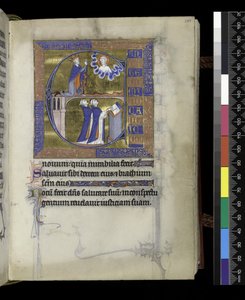 nouum: quia mirabilia fecit
Saluauit sibi dextera eius & brachium
scm eius
Notum fecit dns salutare suu: in conspectu
gentium reuelauit iusticiam suam.